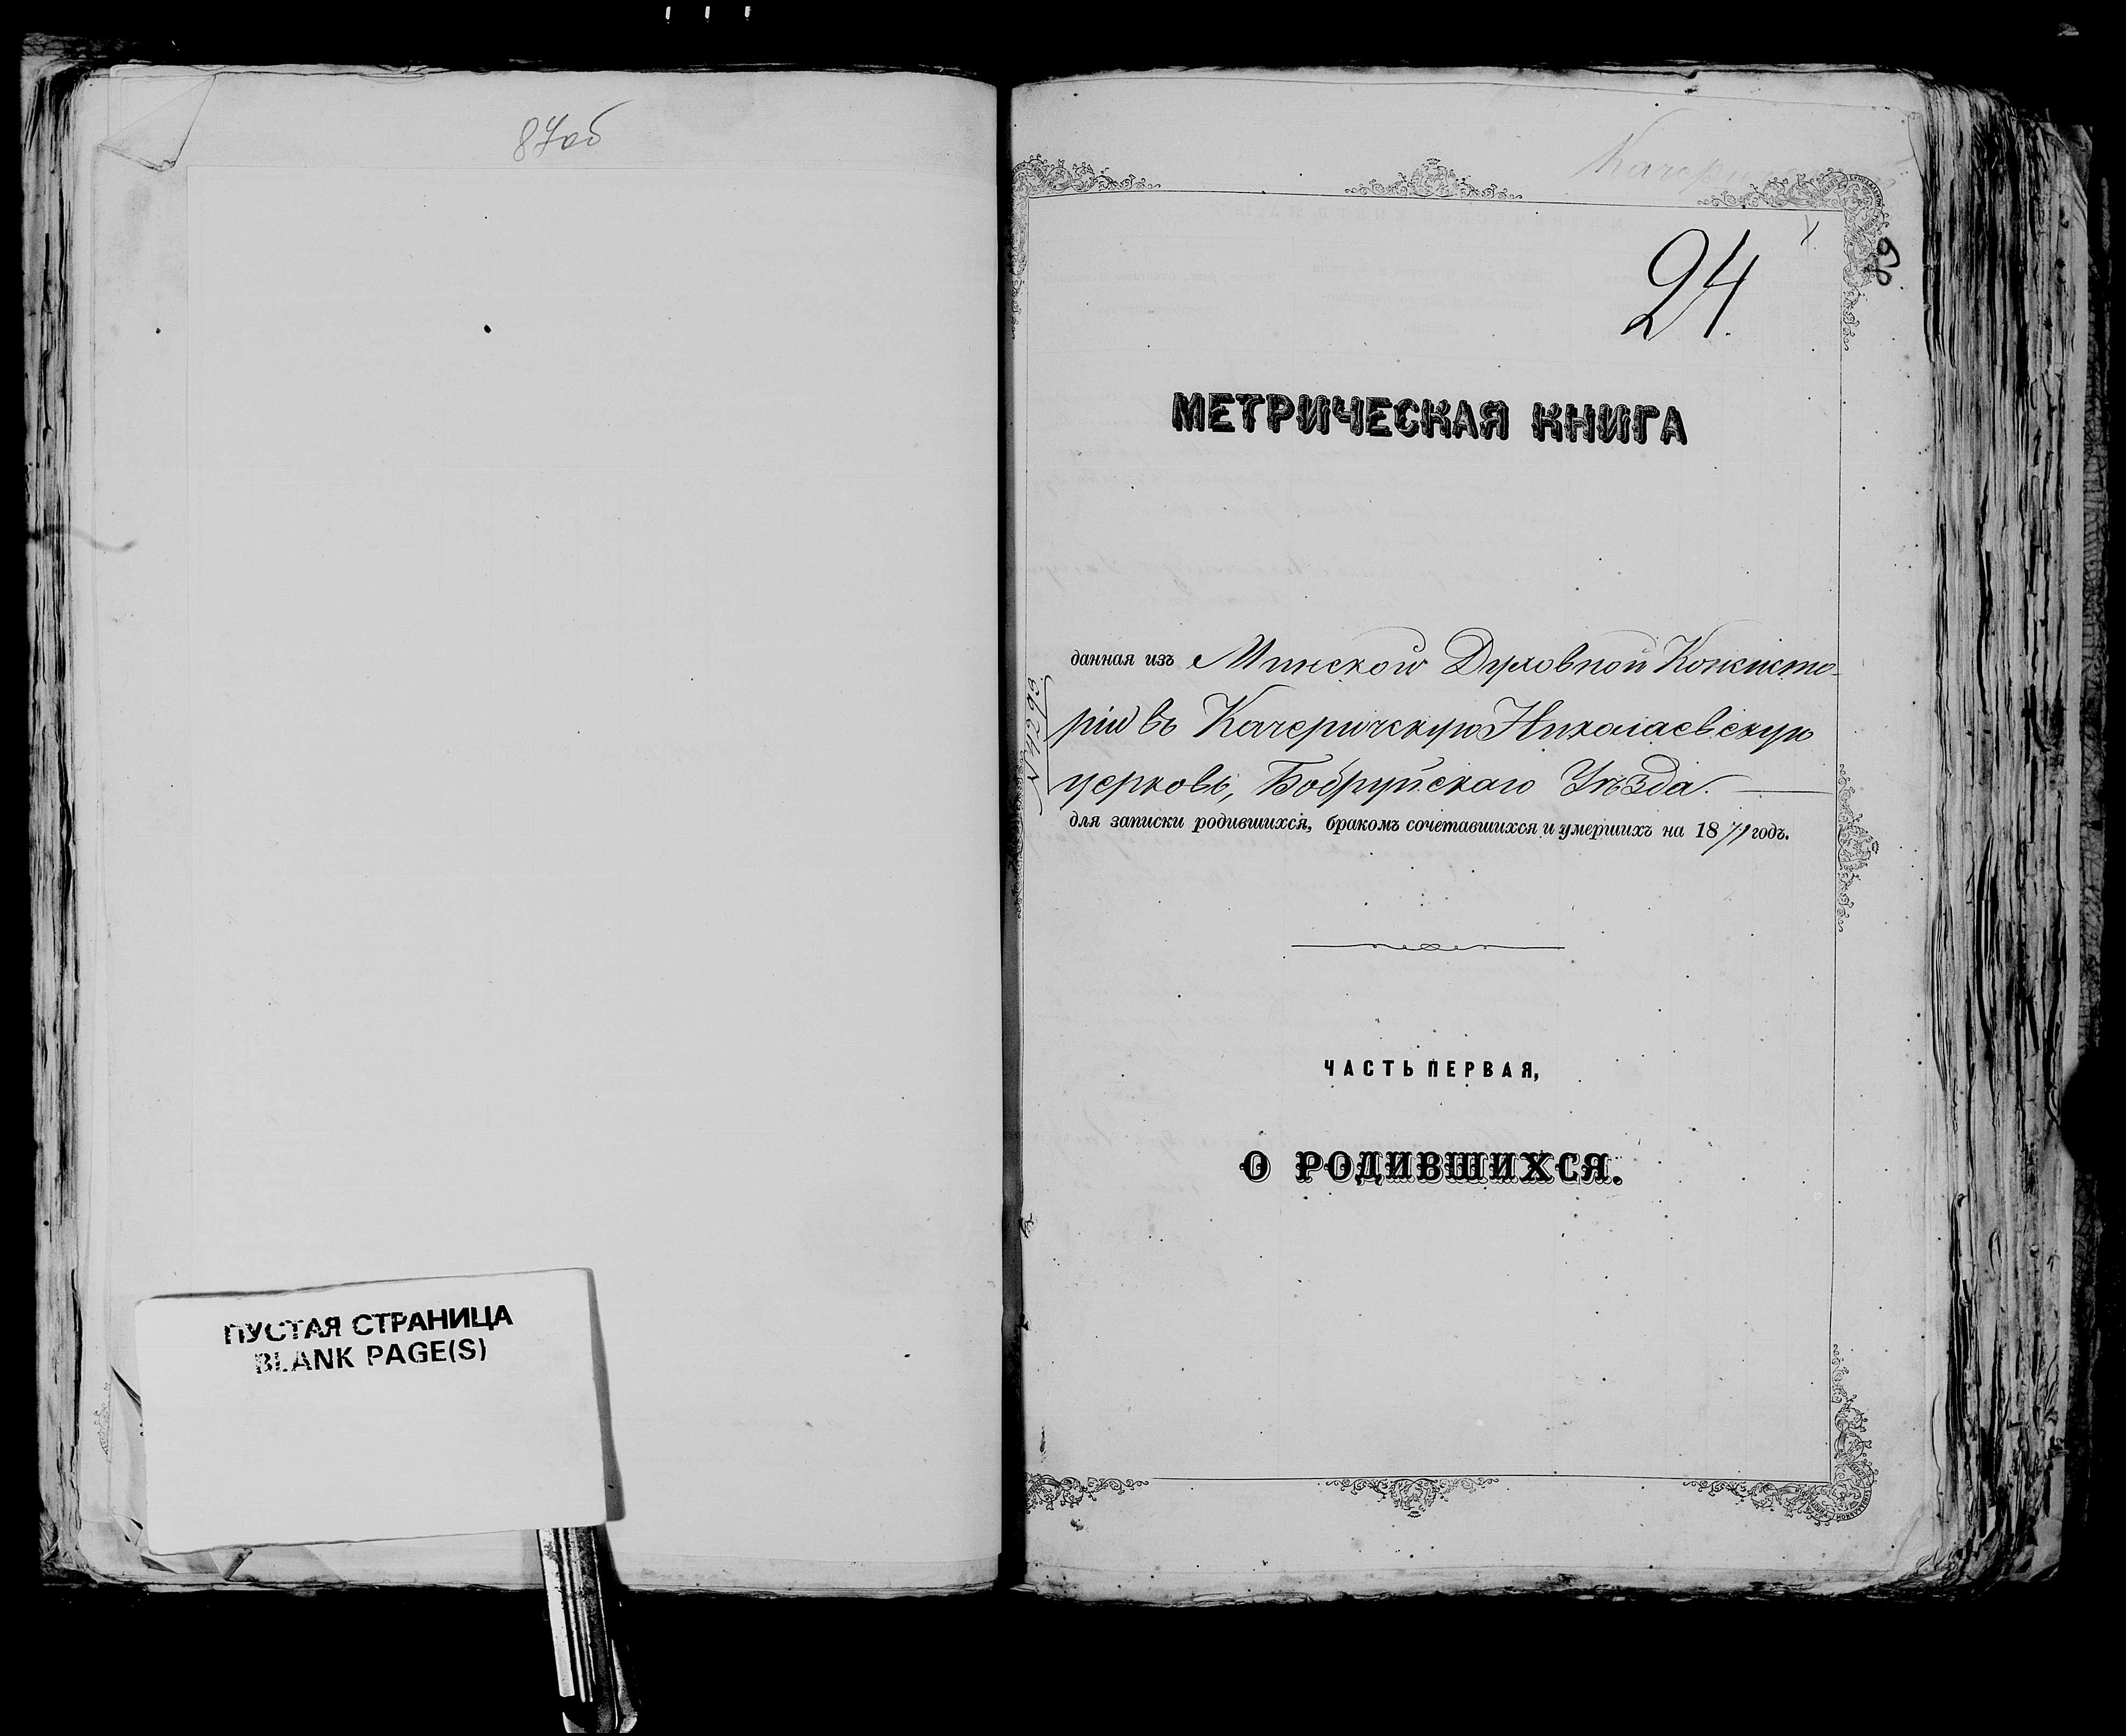 87об
ПУСТАЯ СТРАНИЦА
BLANK PAGE(S)
24
89
МЕТРИЧЕСКАЯ КНИГА
данная изъ Минской Духовной Консисто-
ріи въ Качеричскую Николаевскую
церковь, Бобруйскаго Уѣзда.
для записки родившихся, бракомъ сочетавшихся и умершихъ на 1871 годъ.
ЧАСТЬ ПЕРВАЯ,
О РОДИВШИХСЯ.